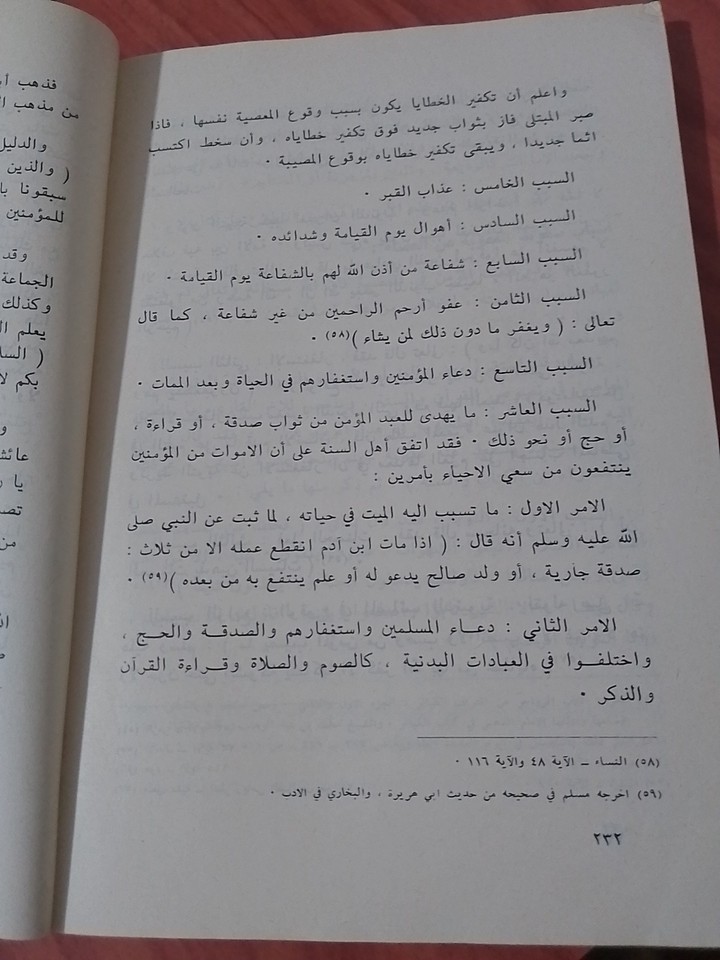 واعلم أن تكفير الخطايا يكون بسبب وقوع المعصية نفسها ، فاذا
صبر المبتلى فاز بثواب جديد فوق تكفير خطاياه ، وأن سخط اكتسب
اثما جديدا ، ويبقى تكفير خطاياه بوقوع المصيبة ٠
السبب الخامس : عذاب القبر ٠
السبب السادس : أهوال يوم القيامة وشدائده ٠
السبب السابع : شفاعة من أذن الله لهم بالشفاعة يوم القيامة ٠
السبب الثامن : عفو أرحم الراحمين من غير شفاعة ، كما قال
تعالى : ( ويغفر ما دون ذلك لمن يشاء )(٥٨) ٠
السبب التاسع : دعاء المؤمنين واستغفارهم في الحياة وبعد الممات ٠
السبب العاشر : ما يهدى للعبد المؤمن من ثواب صدقة ، أو قراءة ،
أو حج أو نحو ذلك ٠ فقد اتفق أهل السنة على أن الاموات من المؤمنين
ينتفعون من سعي الاحياء بأمرين :
الامر الاول : ما تسبب اليه الميت في حياته ، لما ثبت عن النبي صلى
الله عليه وسلم أنه قال : ( اذا مات ابن آدم انقطع عمله الا من ثلاث :
صدقة جارية ، أو ولد صالح يدعو له أو علم ينتفع به من بعده )(٥٩) ٠
الامر الثاني : دعاء المسلمين واستغفارهم والصدقة والحج ،
واختلفوا في العبادات البدنية ، كالصوم والصلاة وقراءة القرآن
والذكر ٠
(٥٨) النساء – الآية ٤٨ والآية ١١٦ ٠
(٥٩) اخرجه مسلم في صحيحه من حديث ابي هريرة ، والبخاري في الادب ٠
٢٣٢
فذهب
من مذهب
والدليل
( والذين
سبقونا
للمؤمنين
وقد
الجماعة
وكذلك
يعلم
( السلا
بكم
يا
من